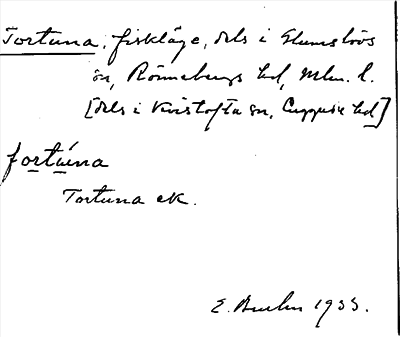 Fortuna, fiskläge, dels i Glumslövs
sn, Rönnebergs hd, Mlm. l.
[dels i Kvistofta sn, Luggude hd]
fortúna
Fortuna ek.
E. 1933.